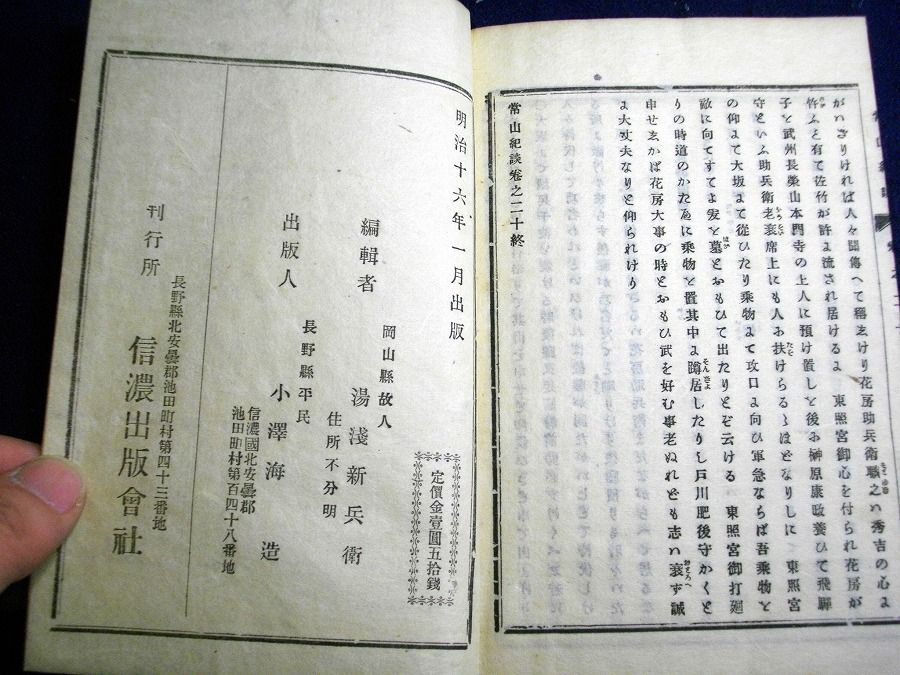 がハざりければ人々聞傳へて稱ゑけり花房助兵衛職之い秀吉の心よ
竹ふと有て佐竹が許よ流され居けるよ 東照宮御心を付られ花房が
子を武州長榮山本門寺の上人に預け置しを後お榊原康政養ひて飛騨
守といふ助兵衛老衰席上にも人お扶けらるゝほどなりしに 東照宮
の仰よて大坂まて從ひたり乘物まて攻口よ向ひ軍急ならば吾乘物を
敵に向てすてよ爰を墓とおもひて出たりとぞ云ける 東照宮御打廻
りの時道のかたゐに乘物を置其中よ蹲居したりし戸川肥後守かくと
申せゑかば花房大事の時とおもひ武を好む事老ぬれども志い衰ず誠
よ大丈夫なりと仰られけり
常山紀談卷之二十終
明治十六年一月出版
定價金壹圓五拾錢
編輯者
岡山縣故人
湯淺新兵衛
住所不分明
出版人
長野縣平民
小澤海造
信濃國北安曇郡
池田町村第百四十八番地
刊行所
長野縣北安曇郡池田町村第四十三番地
信濃出版會社